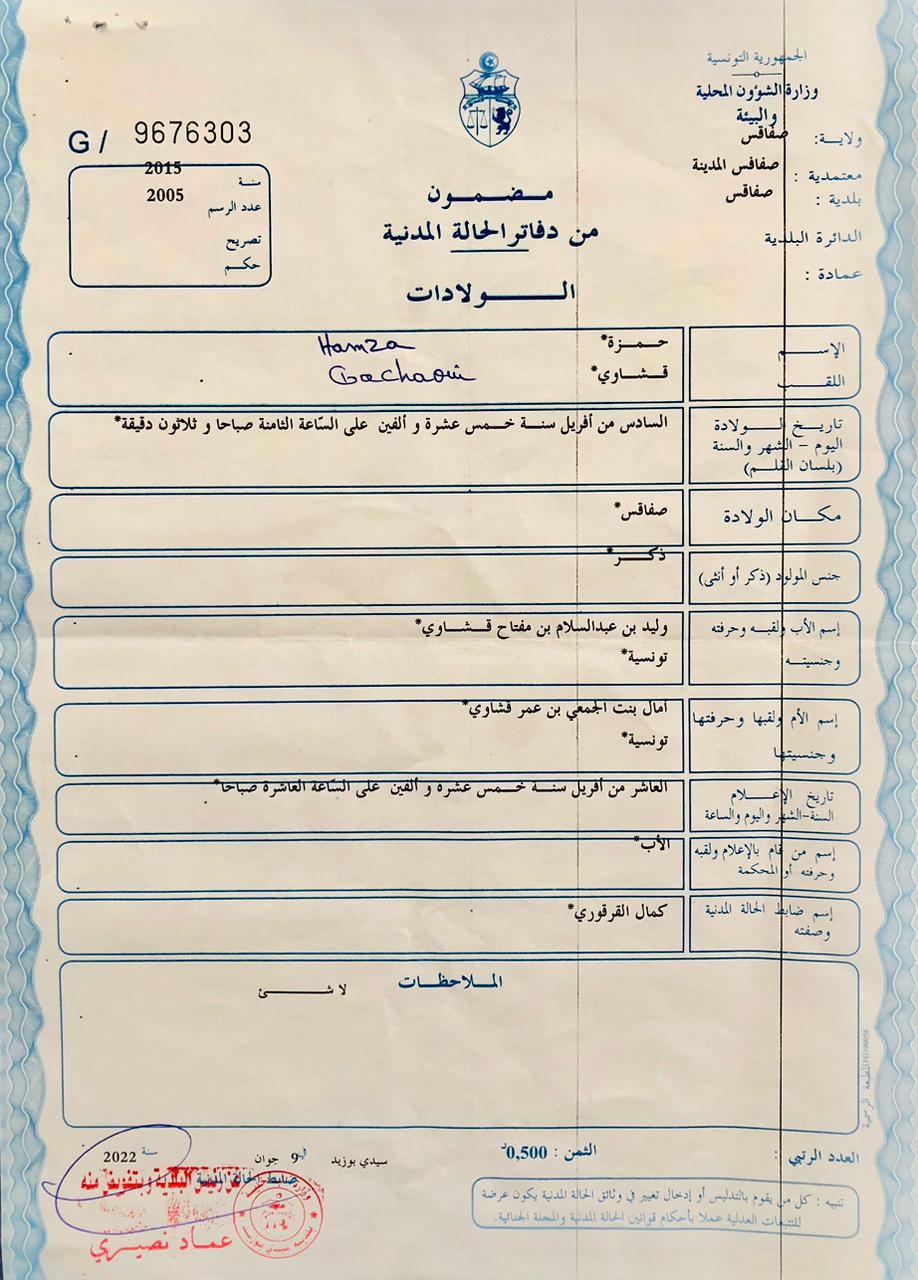 الجمهورية التونسية
وزارة الشؤون المحلية
والبيئة
ولايـة: صفاقس
معتمدية : صفاقس المدينة
بلدية : صفاقس
الدائرة البلدية
عمادة :
G / 9676303
سنـة 2015
عدد الرسم 2005
تصريح
حكـم
مـضـمـون
من دفاتر الحالة المدنية
الـولادات
الإسـم حـمـزة* Hamza
اللقـب قـشـاوي* Gachaoui
تاريـخ الـولادة
اليوم - الشهر والسنة
(بلسان القلـم)
السادس من أفريل سنـة خـمـس عشرة و ألفين على السّاعة الثامنة صباحا و ثلاثون دقيقة*
مكـان الولادة صفاقس*
جنس المولود (ذكر أو أنثى) ذكـر*
إسم الأب ولقبـه وحرفته وليد بن عبدالسلام بن مفتاح قـشـاوي*
وجنسيتـه تونسية*
إسم الأم ولقبها وحرفتها أمال بنت الجمعي بن عمر قشاوي*
وجنسيتها تونسية*
تاريخ الإعـلام
السنة-الشهر واليوم والساعة
العاشر من أفريل سنـة خـمـس عشرة و ألفين على السّاعة العاشرة صباحا*
إسم من قام بالإعلام ولقبه
وحرفته أو المحكمة
الأب*
إسم ضابط الحالة المدنية
وصفته
كمال القرقوري*
المـلاحظـات
لا شـئ
المطبعة الرسمية
العدد الرتبي :
الثمن : 0,500د
سيدي بوزيد في 9 جوان سنة 2022
ضابط الحالة المدنية
عن رئيس البلدية وبتفويض منه
عماد نصيري
تنبيه : كل من يقوم بالتدليس أو إدخال تغيير في وثائق الحالة المدنية يكون عرضة
للتتبعات العدلية عملا بأحكام قوانين الحالة المدنية والمجلة الجنائية.